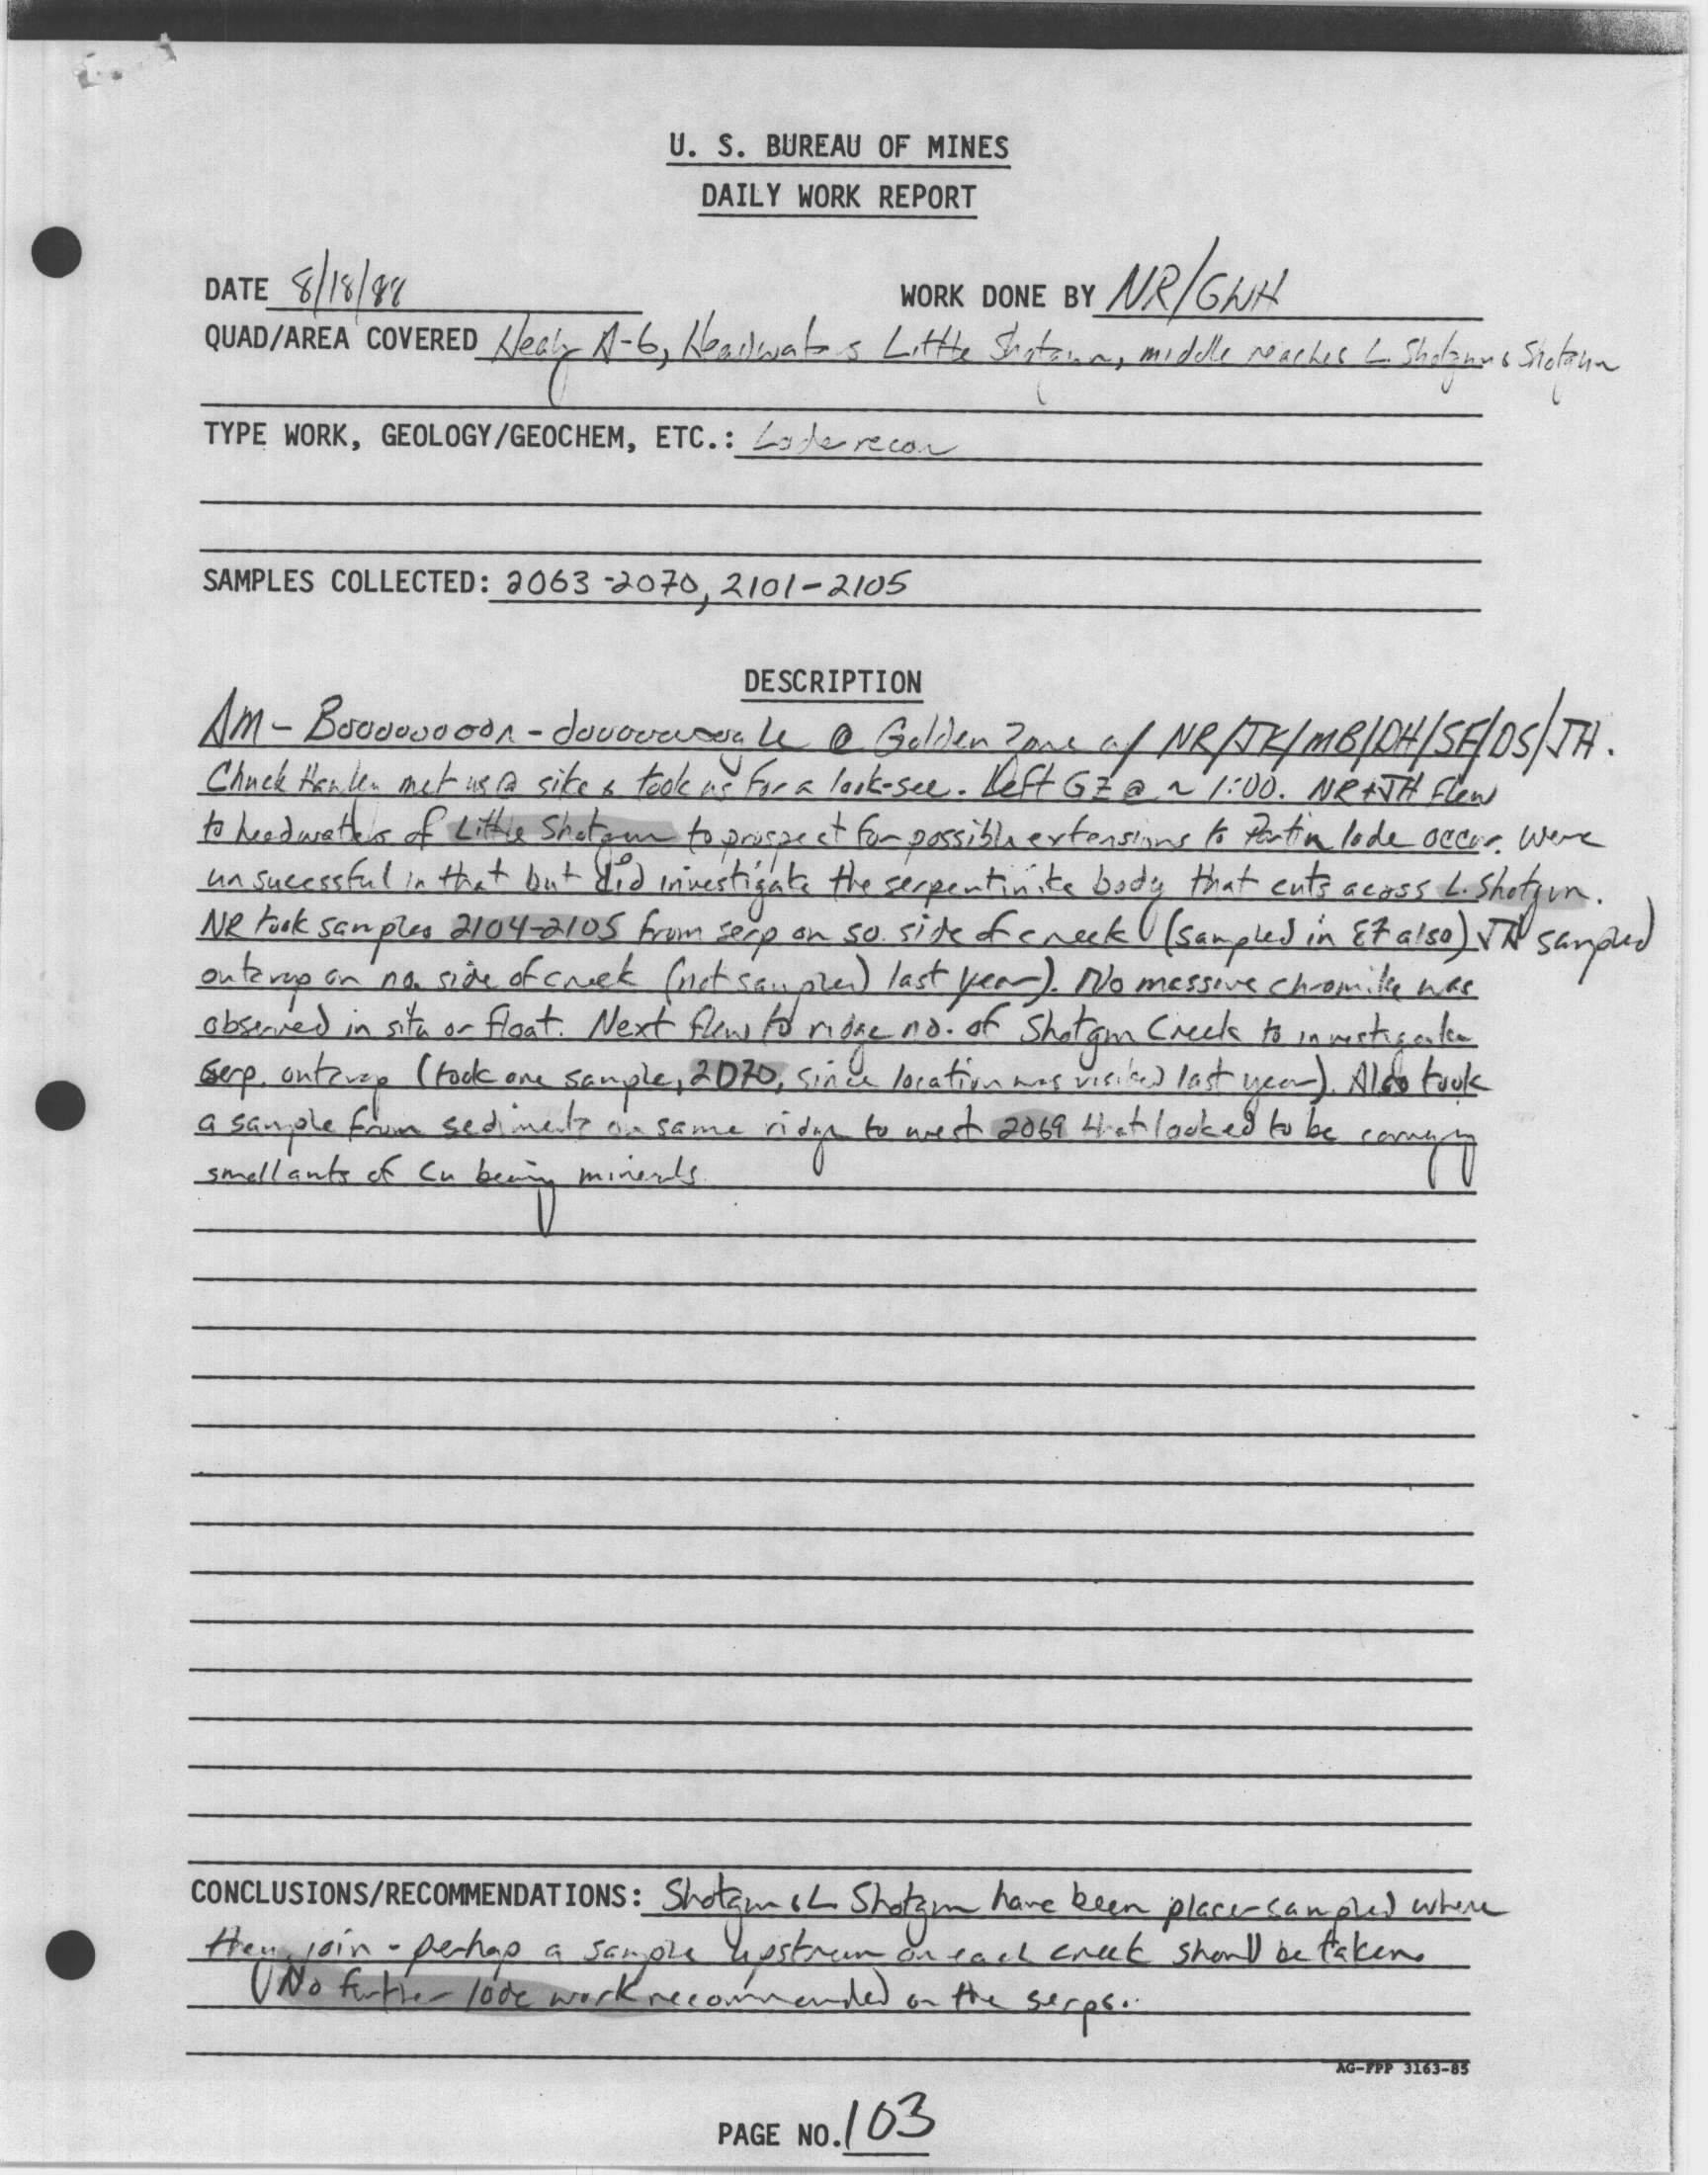 U. S. BUREAU OF MINES
DAILY WORK REPORT
DATE 8/18/88
WORK DONE BY NR/GWH
QUAD/AREA COVERED Healy A-6, Headwaters Little Shotgun, middle reaches L. Shotgun & Shotgun
TYPE WORK, GEOLOGY/GEOCHEM, ETC.: Lode recon
SAMPLES COLLECTED: 2063-2070, 2101-2105
DESCRIPTION
AM - @ Golden Zone w/ NR/JK/MB/DH/SF/DS/JH.
Chuck Hawley met us @ site & took us for a look-see. Left GZ @ ~ 1:00. NR+JH flew
to headwaters of Little Shotgun to prospect for possible extensions to Partin lode occur. Were
unsucessful in that but did investigate the serpentinite body that cuts across L. Shotgun.
NR took samples 2104-2105 from serp on so. side of creek (sampled in 87 also) JH sampled
outcrop on no. side of creek (not sampled last year). No massive chromite was
observed in situ or float. Next flew to ridge no. of Shotgun Creek to investigate
serp. outcrop (took one sample, 2070, since location was visited last year). Also took
a sample from sediments on same ridge to west 2069 that looked to be carrying
small amts of Cu bearing minerals.
CONCLUSIONS/RECOMMENDATIONS: Shotgun & L Shotgun have been placer sampled where
they join - perhap a sample upstream on each creek should be taken.
No further lode work recommended on the serps.
AG-FPP 3163-85
PAGE NO. 103